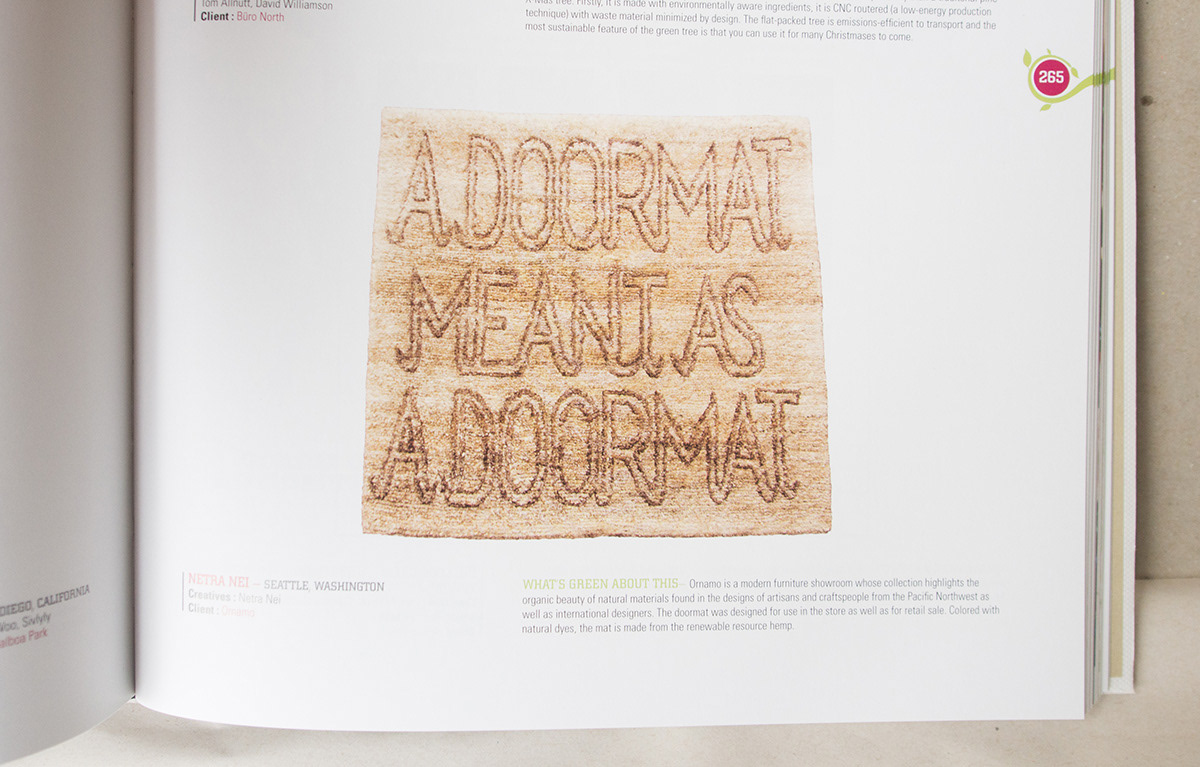 Tom Allnutt, David Williamson
Client : Büro North
X-Mas tree. Firstly, it is made with environmentally aware ingredients, it is CNC routered (a low-energy production
technique) with waste material minimized by design. The flat-packed tree is emissions-efficient to transport and the
most sustainable feature of the green tree is that you can use it for many Christmases to come.
265
A DOORMAT
MEANT AS
A DOORMAT
NETRA NEI – SEATTLE, WASHINGTON
Creatives : Netra Nei
Client : Omamo
WHAT'S GREEN ABOUT THIS – Omamo is a modern furniture showroom whose collection highlights the
organic beauty of natural materials found in the designs of artisans and craftspeople from the Pacific Northwest as
well as international designers. The doormat was designed for use in the store as well as for retail sale. Colored with
natural dyes, the mat is made from the renewable resource hemp.
DIEGO, CALIFORNIA
Woo, Sivlyly
alboa Park